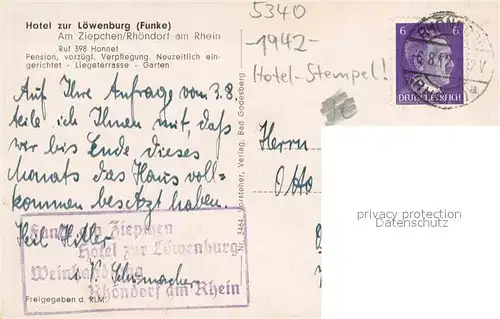 Hotel zur Löwenburg (Funke)
Am Ziepchen/Rhöndorf am Rhein
Ruf 398 Honnef
Pension, vorzügl. Verpflegung. Neuzeitlich ein-
gerichtet - Liegeterrasse - Garten
Auf Ihre Anfrage vom 3.8.
teile ich Ihnen mit, daß
wir bis Ende dieses
Monats das Haus voll-
kommen besetzt haben.
Heil Hitler
Schumacher
Funke am Ziepchen
Hotel zur Löwenburg
Weinhandlung
Rhöndorf am Rhein
Freigegeben d. RLM.
Nr. 3464 Vorsteher, Verlag, Bad Godesberg
5340
-1942-
Hotel-Stempel!
6 6
DEUTSCHES REICH
Herrn
Otto
privacy protection
watermark